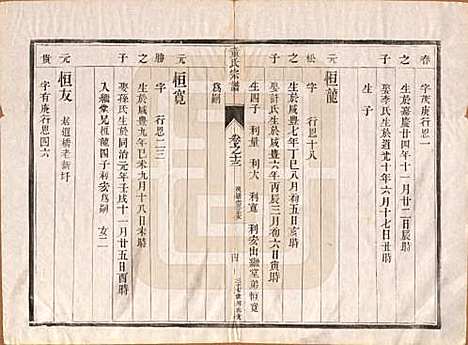 春 字茂庚行恩一
之 生於嘉慶廿四年十一月廿二日辰時
子 娶李氏生於道光十年六月十七日丑時
生子
元 恒龍
松 字 行恩十八
之 生於咸豐七年丁巳八月初五日亥時
子 娶許氏生於咸豐六年丙辰三月初六日寅時
生四子 利量 利大 利寬 利安出繼堂弟恒寬
為嗣
童氏宗譜
四
元 恒寬
勝 字 行恩二三
之 生於咸豐九年己未九月十八日未時
子 娶孫氏生於同治元年壬戌十一月廿五日酉時
入繼堂兄恒龍四子利安為嗣 女二
元 恒友 赵道橋老新圩
貴 字有庚行恩四六